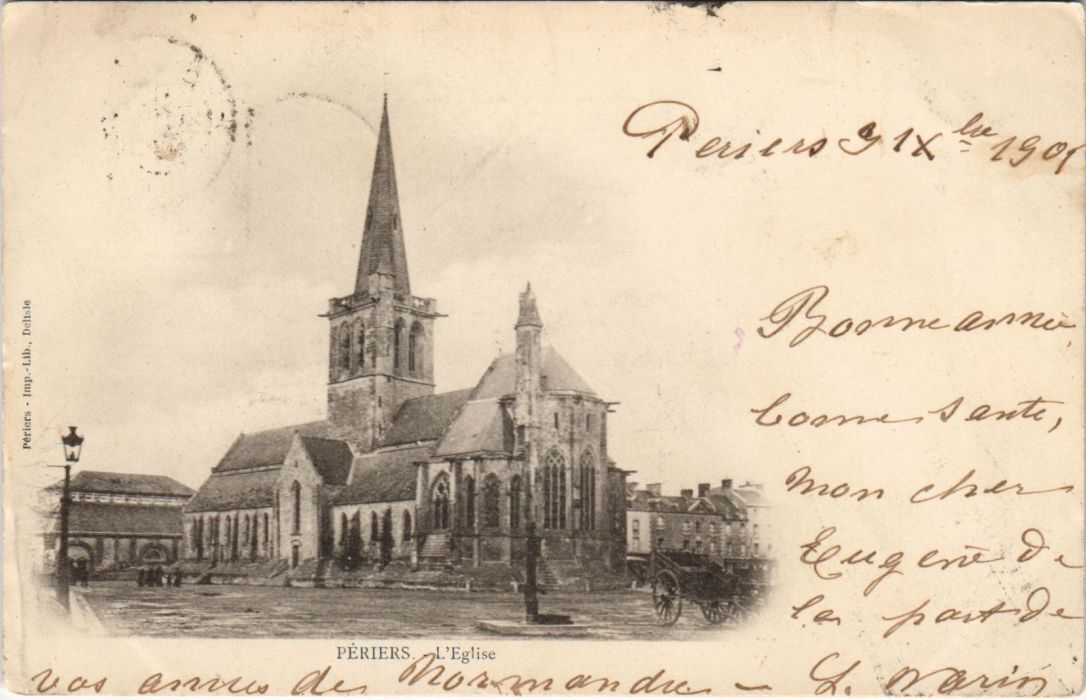 Periers 31 Xbre 190
Bonne année,
bonne sante,
mon cher
Eugène de
la part de
vos amies de Normandie — L Warin
PÉRIERS. - L'Eglise
Périers - Imp.-Lib., Delisle